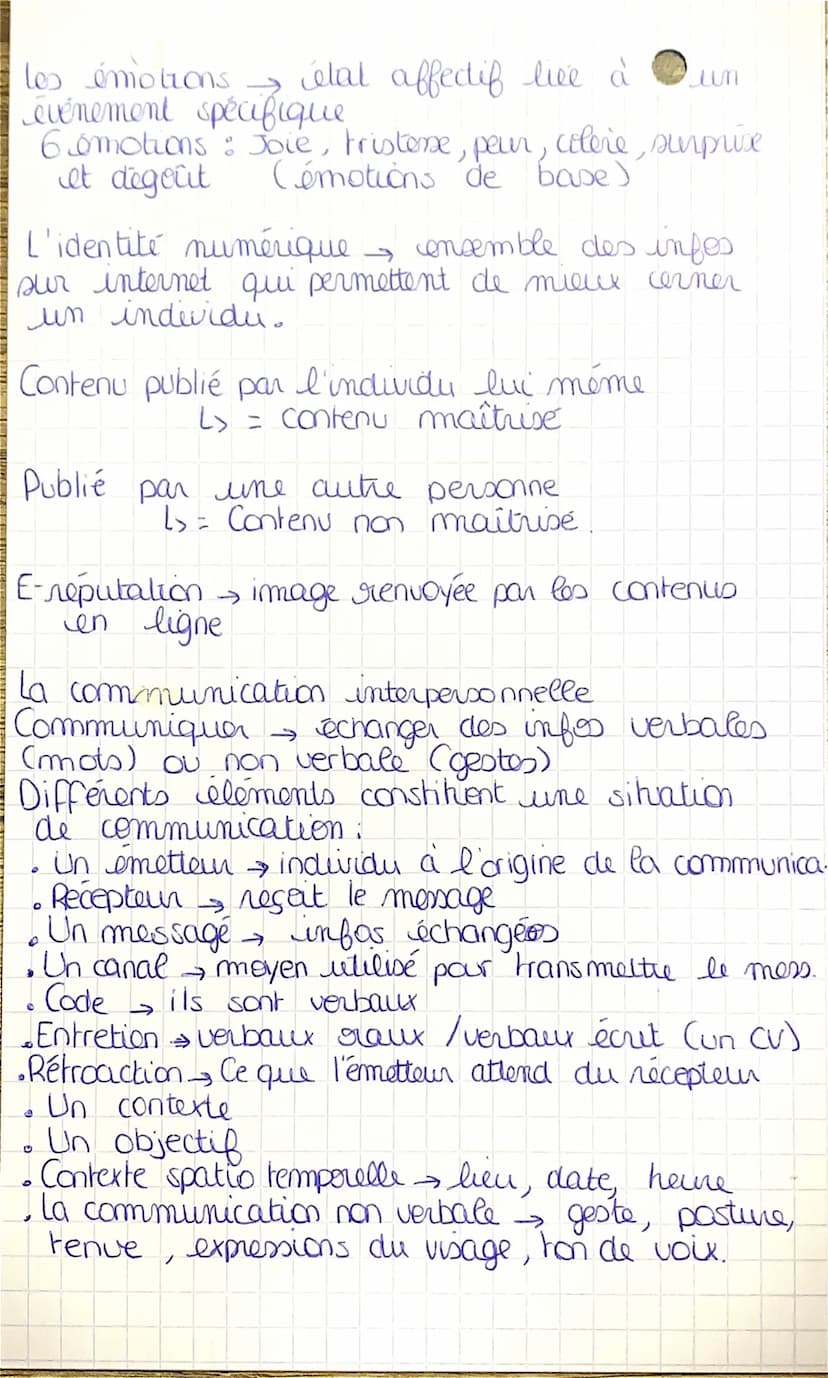 les émotions → état affectif liée à un
événement spécifique
6 émotions : Joie, tristesse, peur, colère, surprise
et dégoût (émotions de base)
L'identité numérique → ensemble des infos
sur internet qui permettent de mieux cerner
un individu.
Contenu publié par l'individu lui même
↳ = contenu maîtrisé
Publié par une autre personne
↳ = Contenu non maîtrisé.
E-réputation → image renvoyée par les contenus
en ligne
La communication interpersonnelle
Communiquer → échanger des infos verbales
(mots) ou non verbale (gestes)
Différents éléments constituent une situation
de communication :
• Un émetteur → individu à l'origine de la communica.
• Récepteur → reçoit le message
• Un message → infos échangées
• Un canal → moyen utilisé pour transmettre le mess.
• Code → ils sont verbaux
• Entretien → verbaux oraux / verbaux écrit (un CV)
• Rétroaction → Ce que l'émetteur attend du récepteur
• Un contexte
• Un objectif
• Contexte spatio temporelle → lieu, date, heure
• La communication non verbale → geste, posture,
tenue, expressions du visage, ton de voix.